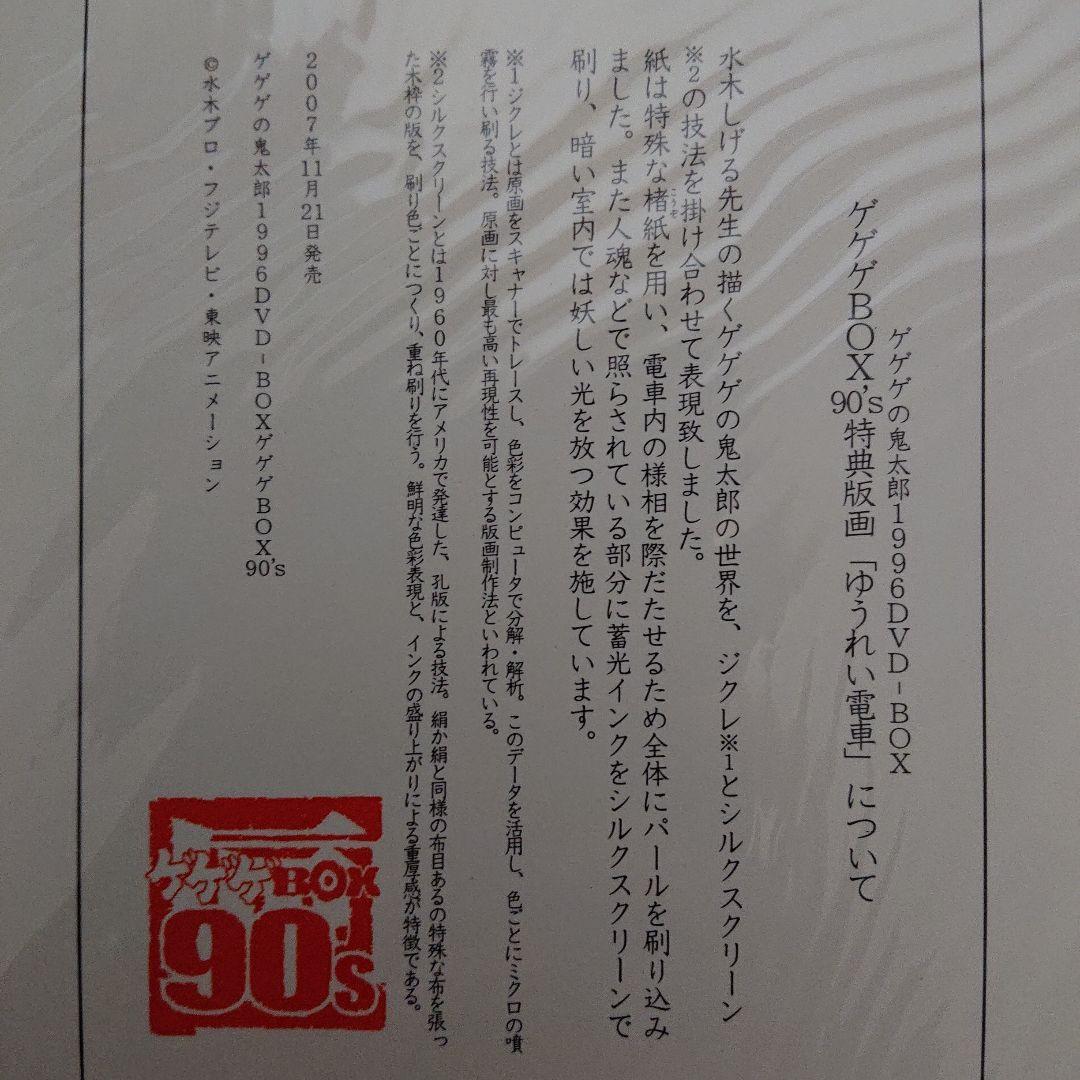 ゲゲゲの鬼太郎1996DVD-BOX
ゲゲゲBOX90's特典版画「ゆうれい電車」について
水木しげる先生の描くゲゲゲの鬼太郎の世界を、ジクレ※1とシルクスクリーン
※2の技法を掛け合わせて表現致しました。
紙は特殊な楮紙を用い、電車内の様相を際だたせるため全体にパールを刷り込み
こうぞ
ました。また人魂などで照らされている部分に蓄光インクをシルクスクリーンで
刷り、暗い室内では妖しい光を放つ効果を施しています。
※1ジクレとは原画をスキャナーでトレースし、色彩をコンピュータで分解・解析。このデータを活用し、色ごとにミクロの噴
霧を行い刷る技法。原画に対し最も高い再現性を可能とする版画制作法といわれている。
※2シルクスクリーンとは1960年代にアメリカで発達した、孔版による技法。絹か絹と同様の布目あるの特殊な布を張っ
た木枠の版を、刷り色ごとにつくり、重ね刷りを行う。鮮明な色彩表現と、インクの盛り上がりによる重厚感が特徴である。
2007年11月21日発売
ゲゲゲの鬼太郎1996DVD-BOXゲゲゲBOX90's
©水木プロ・フジテレビ・東映アニメーション
ゲゲゲBOX
90's